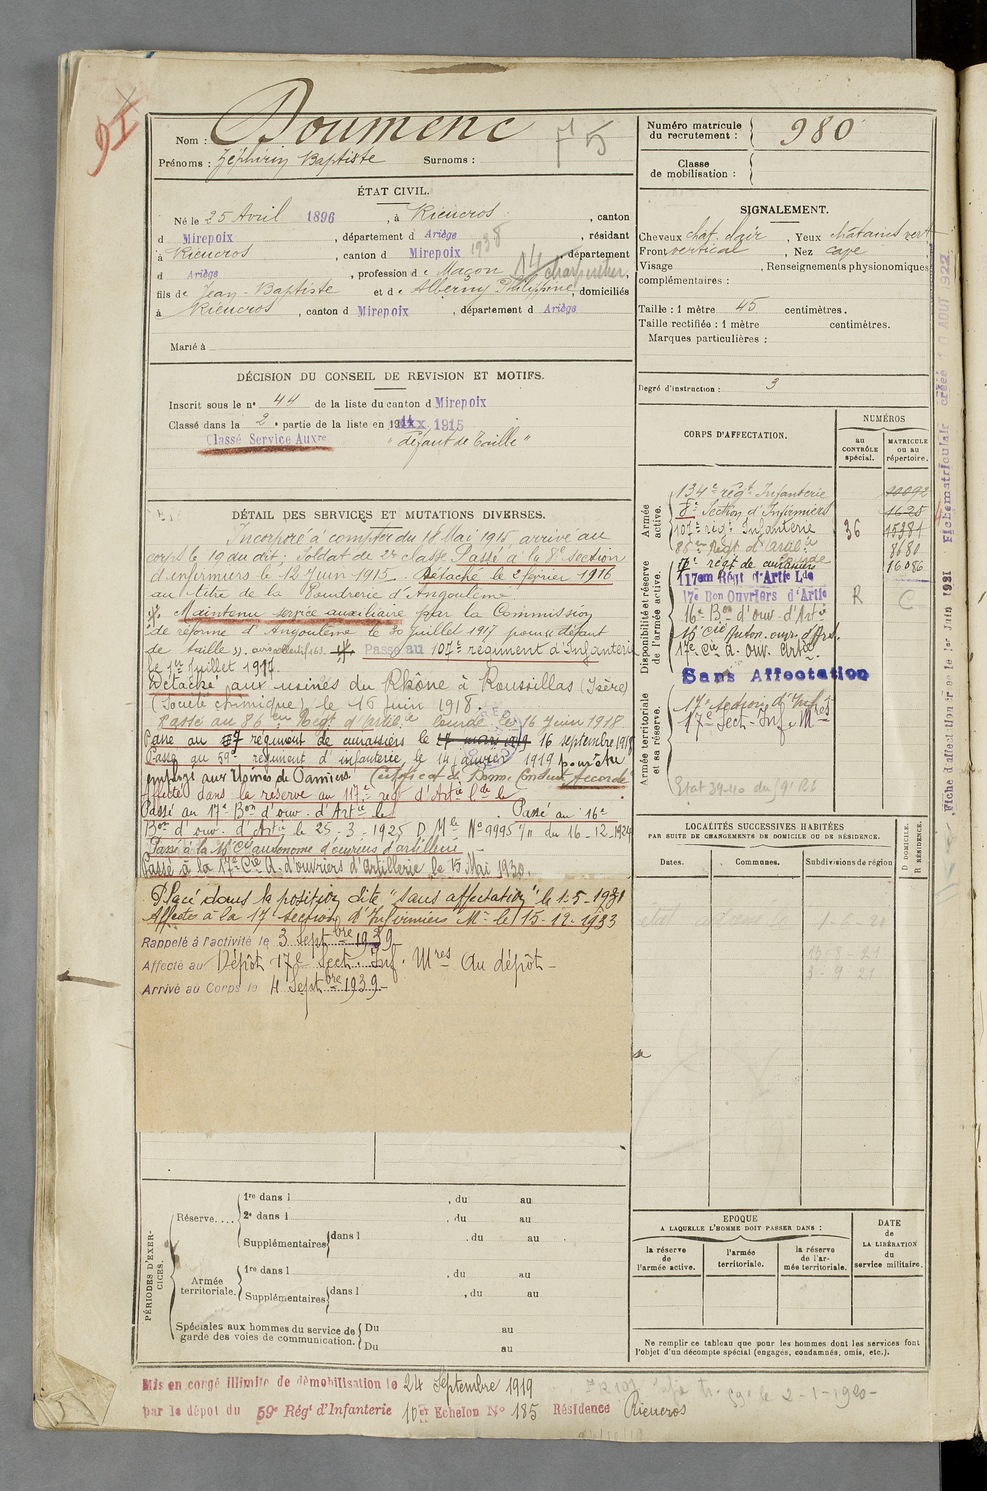 Nom : Doumenc
Prénoms : Zéphirin Baptiste Surnoms :
Numéro matricule du recrutement : 980
Classe de mobilisation :
ÉTAT CIVIL.
Né le 25 Avril 1896, à Rieucros, canton
d Mirepoix, département d Ariège, résidant
à Rieucros, canton d Mirepoix, département
d Ariège, profession de Maçon charpentier,
fils de Jean-Baptiste et de Alberny Philippine, domiciliés
à Rieucros, canton d Mirepoix, département d Ariège
Marié à
SIGNALEMENT.
Cheveux chat. clair, Yeux châtains vert
Front vertical, Nez cave
Visage , Renseignements physionomiques
complémentaires :
Taille : 1 mètre 45 centimètres.
Taille rectifiée : 1 mètre centimètres.
Marques particulières :
Degré d'instruction : 3
DÉCISION DU CONSEIL DE REVISION ET MOTIFS.
Inscrit sous le n° 44 de la liste du canton d Mirepoix
Classé dans la 2e partie de la liste en 1915
Classé Service Auxre "défaut de Taille"
CORPS D'AFFECTATION.
NUMÉROS
au CONTRÔLE spécial.
MATRICULE ou au répertoire.
Armée active.
134e régt Infanterie
8e Section d'Infirmiers 1635
107e régt Infanterie 36 15391
86e Régt d'Artil. Lourde 8680
7e régt de cuirassiers 16086
Disponibilité et réserve de l'armée active.
117em Régt d'Artie Lde
17e Bon Ouvriers d'Artie R C
16e Bon d'ouv. d'Artie
15e Cie Auton. ouv. d'Art.
17e Cie A. Ouv. Artie
Sans Affectation
Armée territoriale et sa réserve.
17e Section d'Infres
17e Sect. Inf. Mres
Etat 39-40 du 9e RI
DÉTAIL DES SERVICES ET MUTATIONS DIVERSES.
Incorporé à compter du 18 Mai 1915, arrivé au
corps le 19 du dit ; Soldat de 2e classe. Passé à la 8e section
d'infirmiers le 12 Juin 1915. Détaché le 2 février 1916
au titre de la Poudrerie d'Angoulême.
Maintenu service auxiliaire par la Commission
de réforme d'Angoulême le 30 juillet 1917 pour "défaut
de taille". Passé au 107e régiment d'Infanterie
le 1er Juillet 1917.
Détaché aux usines du Rhône à Roussillas (Isère)
(Société chimique), le 15 Juin 1918.
Passé au 86em Régt d'Artil.ie lourde le 16 Juin 1918.
Passé au 7 régiment de cuirassiers le 16 septembre 1918
Passé au 59e régiment d'infanterie, le 14 janvier 1919 pour être
employé aux Usines de Pamiers. Certificat de Bonne Conduite Accordé
Affecté dans la réserve au 117e régt d'Artie Lde le .
Passé au 17e Bon d'ouv. d'Artie le . Passé au 16e
Bon d'ouv. d'Artie le 25-3-1925 D. Mle N° 9995 du 16-12-1924
Passé à la 15e Cie autonome d'ouvriers d'artillerie
Passé à la 17e Cie A. d'ouvriers d'Artillerie, le 15 Mai 1930.
Placé dans la position dite "sans affectation" le 1.5-1931
Affecté à la 17 Section d'Infirmiers Mre le 15-12-1933
Rappelé à l'activité le 3 Septbre 1939
Affecté au Dépôt 17e Sect. Inf. Mres Au dépôt
Arrivé au Corps le 4 Septbre 1939
LOCALITÉS SUCCESSIVES HABITÉES
PAR SUITE DE CHANGEMENTS DE DOMICILE OU DE RÉSIDENCE.
Dates. Communes. Subdivisions de région
D DOMICILE. R RÉSIDENCE.
13-8-21
3-9-21
PÉRIODES D'EXERCICES.
Réserve.... 1re dans l , du au
2e dans l , du au
Supplémentaires dans l , du au
Armée territoriale. 1re dans l , du au
Supplémentaires dans l , du au
Spéciales aux hommes du service de garde des voies de communication. Du au
Du au
EPOQUE
A LAQUELLE L'HOMME DOIT PASSER DANS :
la réserve de l'armée active.
l'armée territoriale.
la réserve de l'armée territoriale.
DATE de LA LIBÉRATION du service militaire.
Ne remplir ce tableau que pour les hommes dont les services font
l'objet d'un décompte spécial (engagés, condamnés, omis, etc.).
Mis en congé illimité de démobilisation le 24 Septembre 1919
par le dépôt du 59e Régt d'Infanterie 10e Echelon N° 185 Résidence Rieucros
Fiche d'affectation créée le 1er Juin 1921 Fiche matriculaire créée 10 AOUT 1922